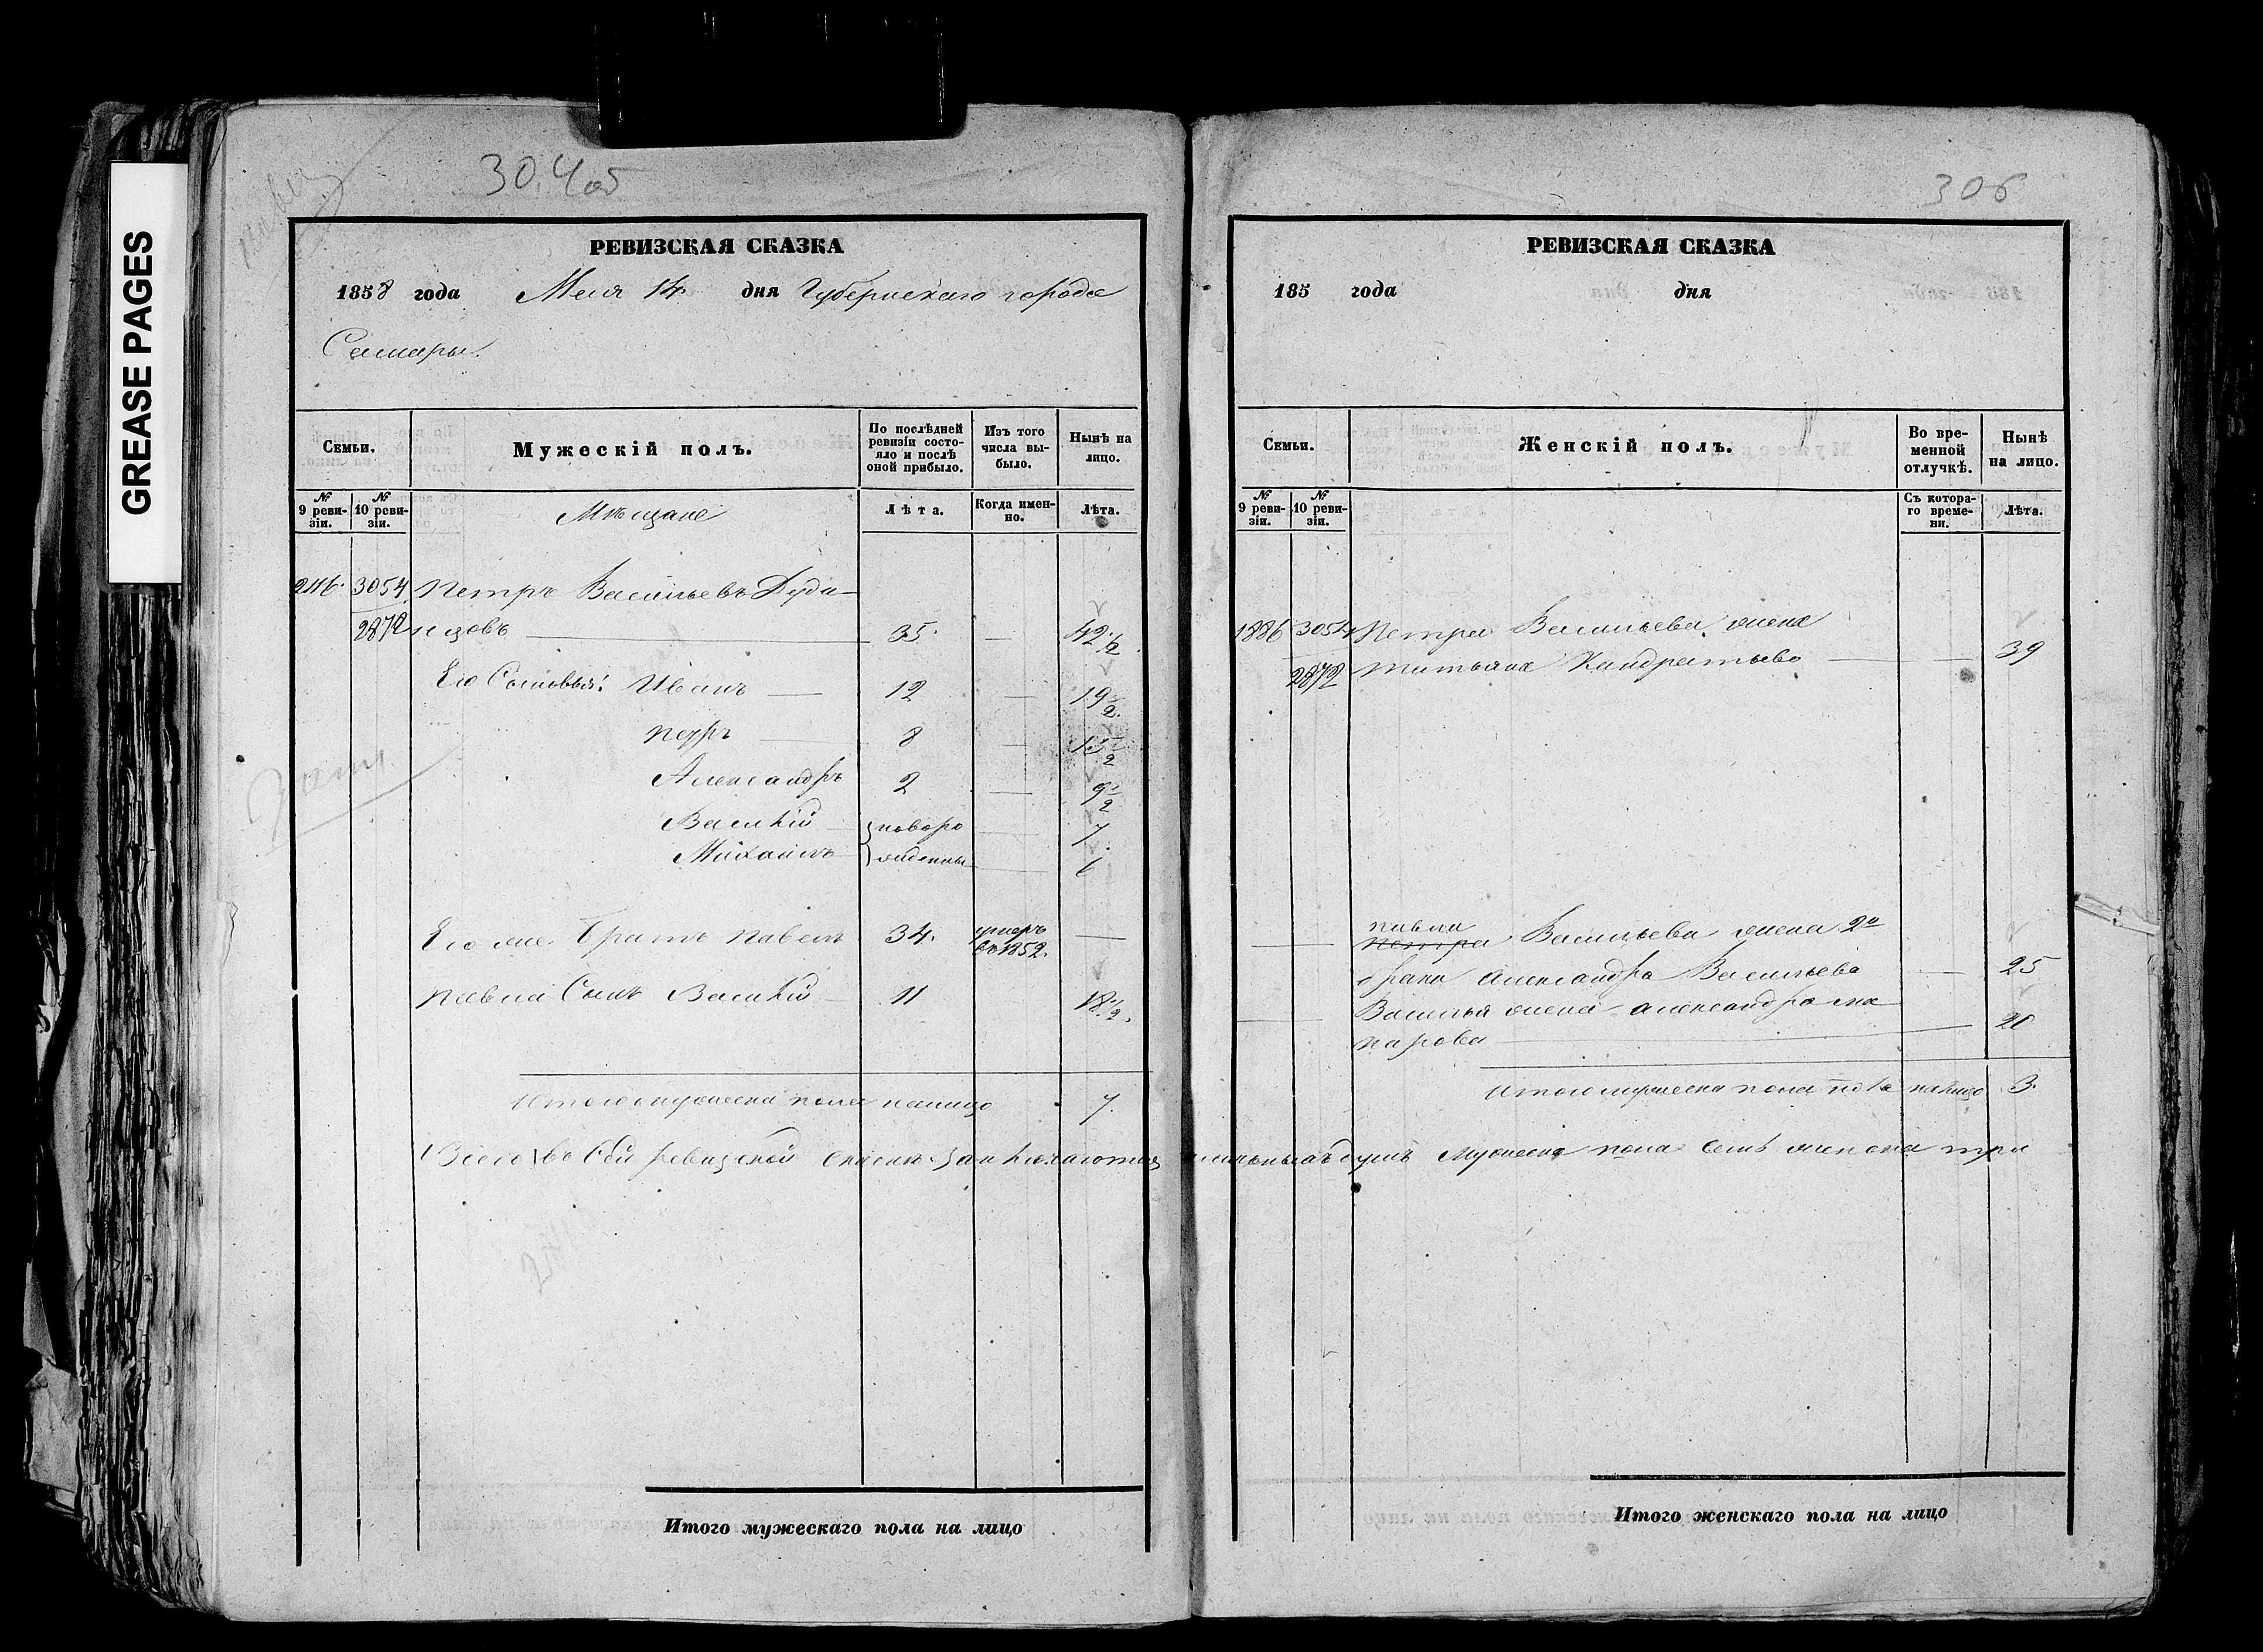 GREASE PAGES
306
РЕВИЗСКАЯ СКАЗКА
1858 года Мая 14 дня Губернскаго города
Самары.
Семьи.
Мужескій полъ.
По послѣдней ревизіи состо-
яло и послѣ оной прибыло.
Изъ того числа вы-
было.
Нынѣ на лицо.
№ 9 реви-
зіи.
№ 10 реви-
зіи.
Мѣщане
Лѣта.
Когда имен-
но.
Лѣта.
3054 Петръ Васильевъ
2872 35. — 42½
Его Сыновья: Иванъ — 12 — 19½
Петръ — 8 — 15½
Александръ 2 — 9½
Василій } новоро — 7.
Михаилъ } жденны — 6
Его же Братъ Павелъ 34. умеръ въ 1852. —
Павла Сынъ Василій 11 18½.
Итого мужеска пола налицо 7.
Всего въ сей ревизской сказкѣ заключается наличныхъ душъ мужеска пола семь женска три
Итого мужескаго пола на лицо
РЕВИЗСКАЯ СКАЗКА
185 года дня
Семьи.
Женскій полъ.
Во вре-
менной отлучкѣ.
Нынѣ на лицо.
№ 9 реви-
зіи.
№ 10 реви-
зіи.
Съ котора-
го време-
ни.
Лѣта.
1886 3054 Петра Васильева жена
2872 Татьяна Кандратьева — — 39
Павла
Петра Васильева жена 2й
брака Александра Васильева — 25
Василья жена Александра Ма
карова — 20
Итого пола налицо 3.
Итого женскаго пола на лицо